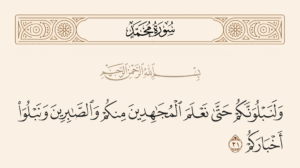 سُورَةُ مُحَمَّدٍ
بِسْمِ اللَّهِ الرَّحْمَٰنِ الرَّحِيمِ
وَلَنَبْلُوَنَّكُمْ حَتَّىٰ نَعْلَمَ الْمُجَاهِدِينَ مِنكُمْ وَالصَّابِرِينَ وَنَبْلُوَا۟
أَخْبَارَكُمْ ٣١